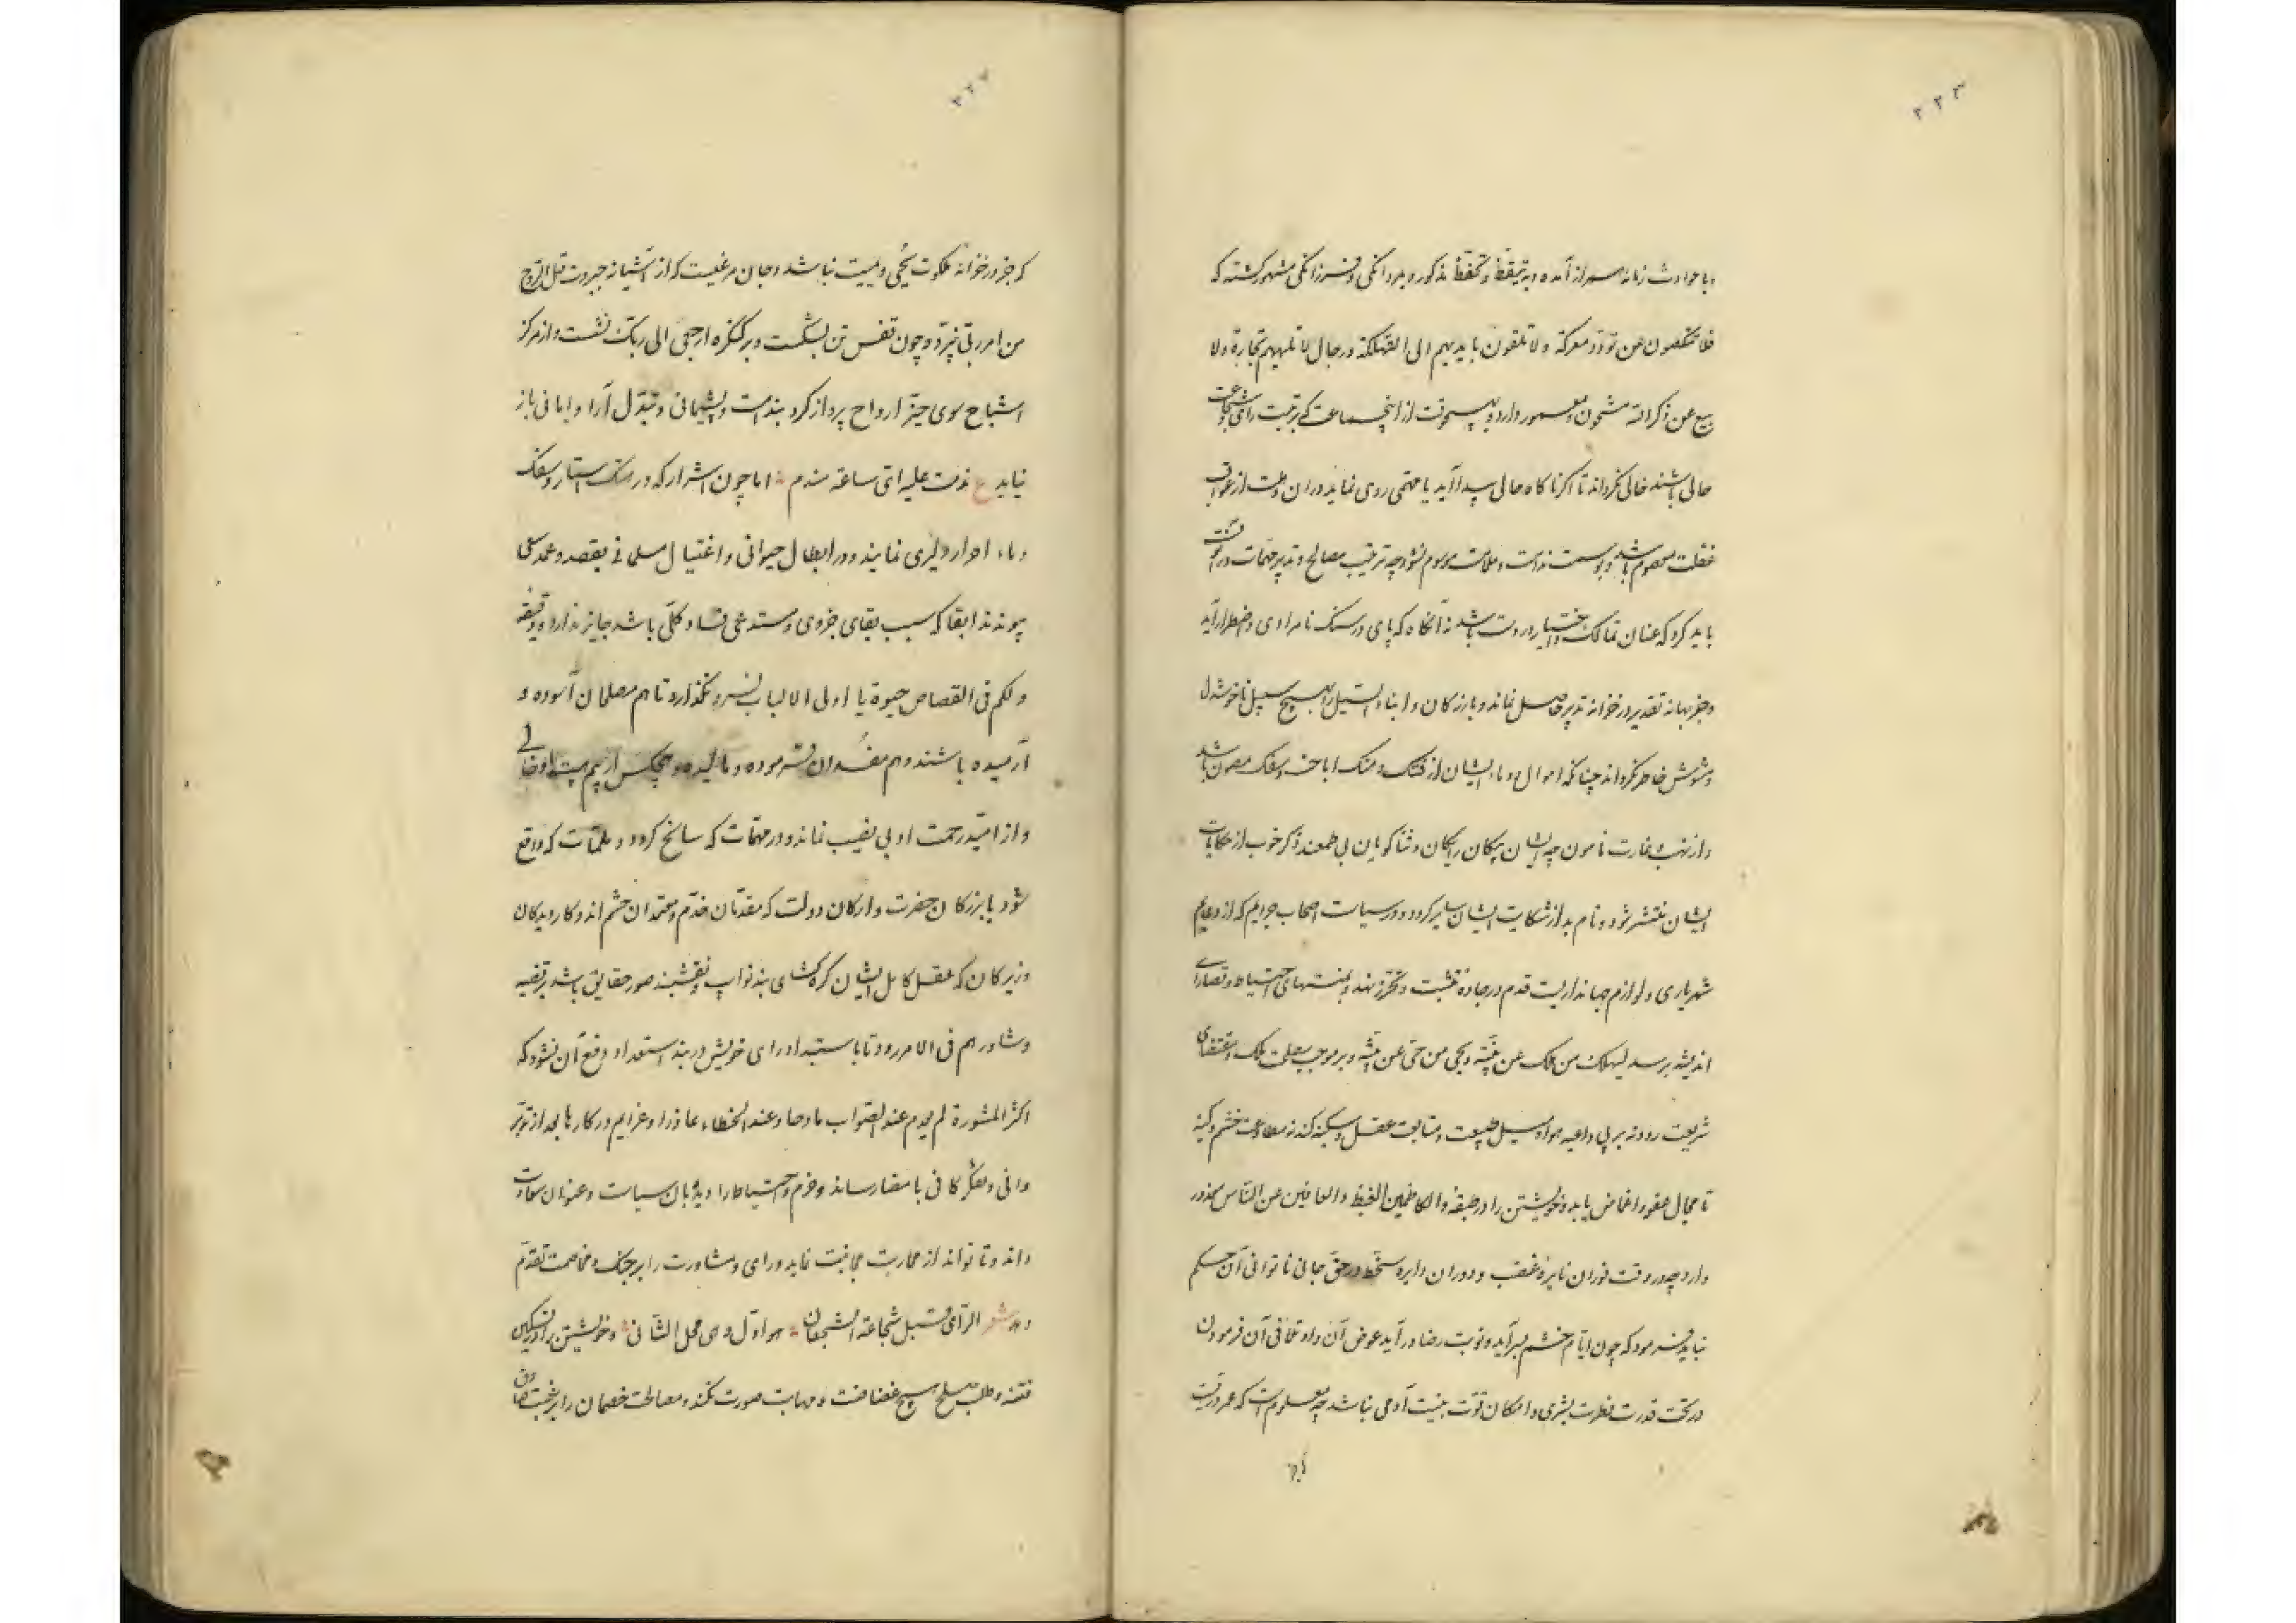 ۳۲۳
وبا حوادث زمانه سرافراز آمده و به تیقظ و تحفظ مذکور و بمردانگی و فرزانگی مشهور گشته که
فلا تنکصون عن تورد معرکة ولا تلقون بایدیهم الی التهلکة و رجال لا تلهیهم تجارة ولا
بیع عن ذکر الله مشحون و معمور دارد و هیچوقت از اینجماعت که برتبت رای و شجاعت
حالی باشند خالی نگرداند تا اگر ناگاه حالی پیدا آید یا مهمی روی نماید در ان وقت از عواقب
غفلت معصوم باشد و بوسمت ندامت و ملامت موسوم نشود چه ترتیب مصالح و تدبیر مهمات در آنوقت
باید کرد که عنان تمالک و اختیار در دست باشد نه آنگاه که پای در سنگ نامرادی و اضطرار آید
و جز بهانه تقدیر در خزانه تدبیر حاصل نماند و بازرگان و ابناء السبیل را بهیچ سبیل ناخوشدل
و مشوش خاطر نگرداند چنانکه اموال و دماء ایشان از فتک و هتک و اباحت و سفک مصون باشد
و از نهب و غارت مامون چه ایشان پیکان رایگان و ثناگویان بی طمعند ذکر خوب از حکایات
ایشان منتشر شود و نام بد از شکایت ایشان سایر گردد و در سیاست اصحاب جرایم که از دعایم
شهریاری و لوازم جهانداریست قدم در جاده تثبت و تحرز نهد و بمنتهای احتیاط و قصارای
اندیشه برسد لیهلک من هلک عن بینة ویحیی من حی عن بینه و بر موجب مصلحت ملک و مقتضای
شریعت رود نه بر پی داعیه هوا و میل طبیعت و متابعت عقل و سکینه کند نه مطاوعت خشم و کینه
تا مجال عفو و اغماض یابد و خویشتن را در طبقه والکاظمین الغیظ والعافین عن الناس معدود
دارد چه در وقت فوران نایره غضب و دوران دایره سخط در حق جانی ناتوانی آن حکم
نباید فرمود که چون ایام خشم بسر آید و نوبت رضا در آید عوض آن داد و تلافی آن فرمودن
در تحت قدرت فطرت بشری و امکان قوت بنیت آدمی نباشد چه معلومست که عمر و دیعتیست
که جز در خزانه ملکوت یحیی و یمیت نباشد و جان مرغیست که از آشیانه جبروت قل الروح
من امر ربی پرد و چون قفس تن بشکست و بر کنگره ارجعی الی ربک نشست و از مرکز
اشباح سوی حیز ارواح پرواز کرد بندامت و پشیمانی و تبدل آرا و امانی باز
نیاید ع ندمت علیه ای ساعة مندم ؞ اما چون اشرار که در هتک استار و سفک
دماء احرار دلیری نمایند و در ابطال حیوانی و اغتیال مسلمانی بقصد و عمد سعی
پیوندند ابقا که سبب بقای جزوی و مستدعی فساد کلی باشد جایز ندارد و دقیقه
ولکم فی القصاص حیوة یا اولی الالباب فرو نگذارد تا هم مصلحان آسوده و
آرمیده باشند و هم مفسدان فرسوده و مالیده و هیچکس از بیم هیبت او خالی
و از امید رحمت او بی نصیب نماند و در مهمات که سانح گردد و ملمات که واقع
شود با بزرگان حضرت و ارکان دولت که مقدمان خدم و معتمدان حشم اند و کاردیدگان
و زیرکان که عقل کامل ایشان گره گشای بند نوایب و نقشبند صور حقایق باشد بر قضیه
وشاورهم فی الامر رود تا باستبداد رای خویش در بند استعداد دفع آن نشود که
اکثر المشورة لم یعدم عند الصواب مادحا وعند الخطاء عاذرا و عزایم در کارها بعد از تدبر
وافی و تفکر کافی بامضا رساند و حزم و احتیاط را دیدبان سیاست و عنوان سعادت
داند و تا تواند از محاربت مجانبت نماید و رای و مشاورت را بر جنگ و مخاصمت تقدم
دهد شعر الرای قبل شجاعة الشجعان ؞ هو اول وهی المحل الثانی ؞ و خویشتن را در تسکین
فتنه و طلب صلح هیچ غضاضت و مهابت صورت نکند و مصالحت خصمان را بر محبت صادق